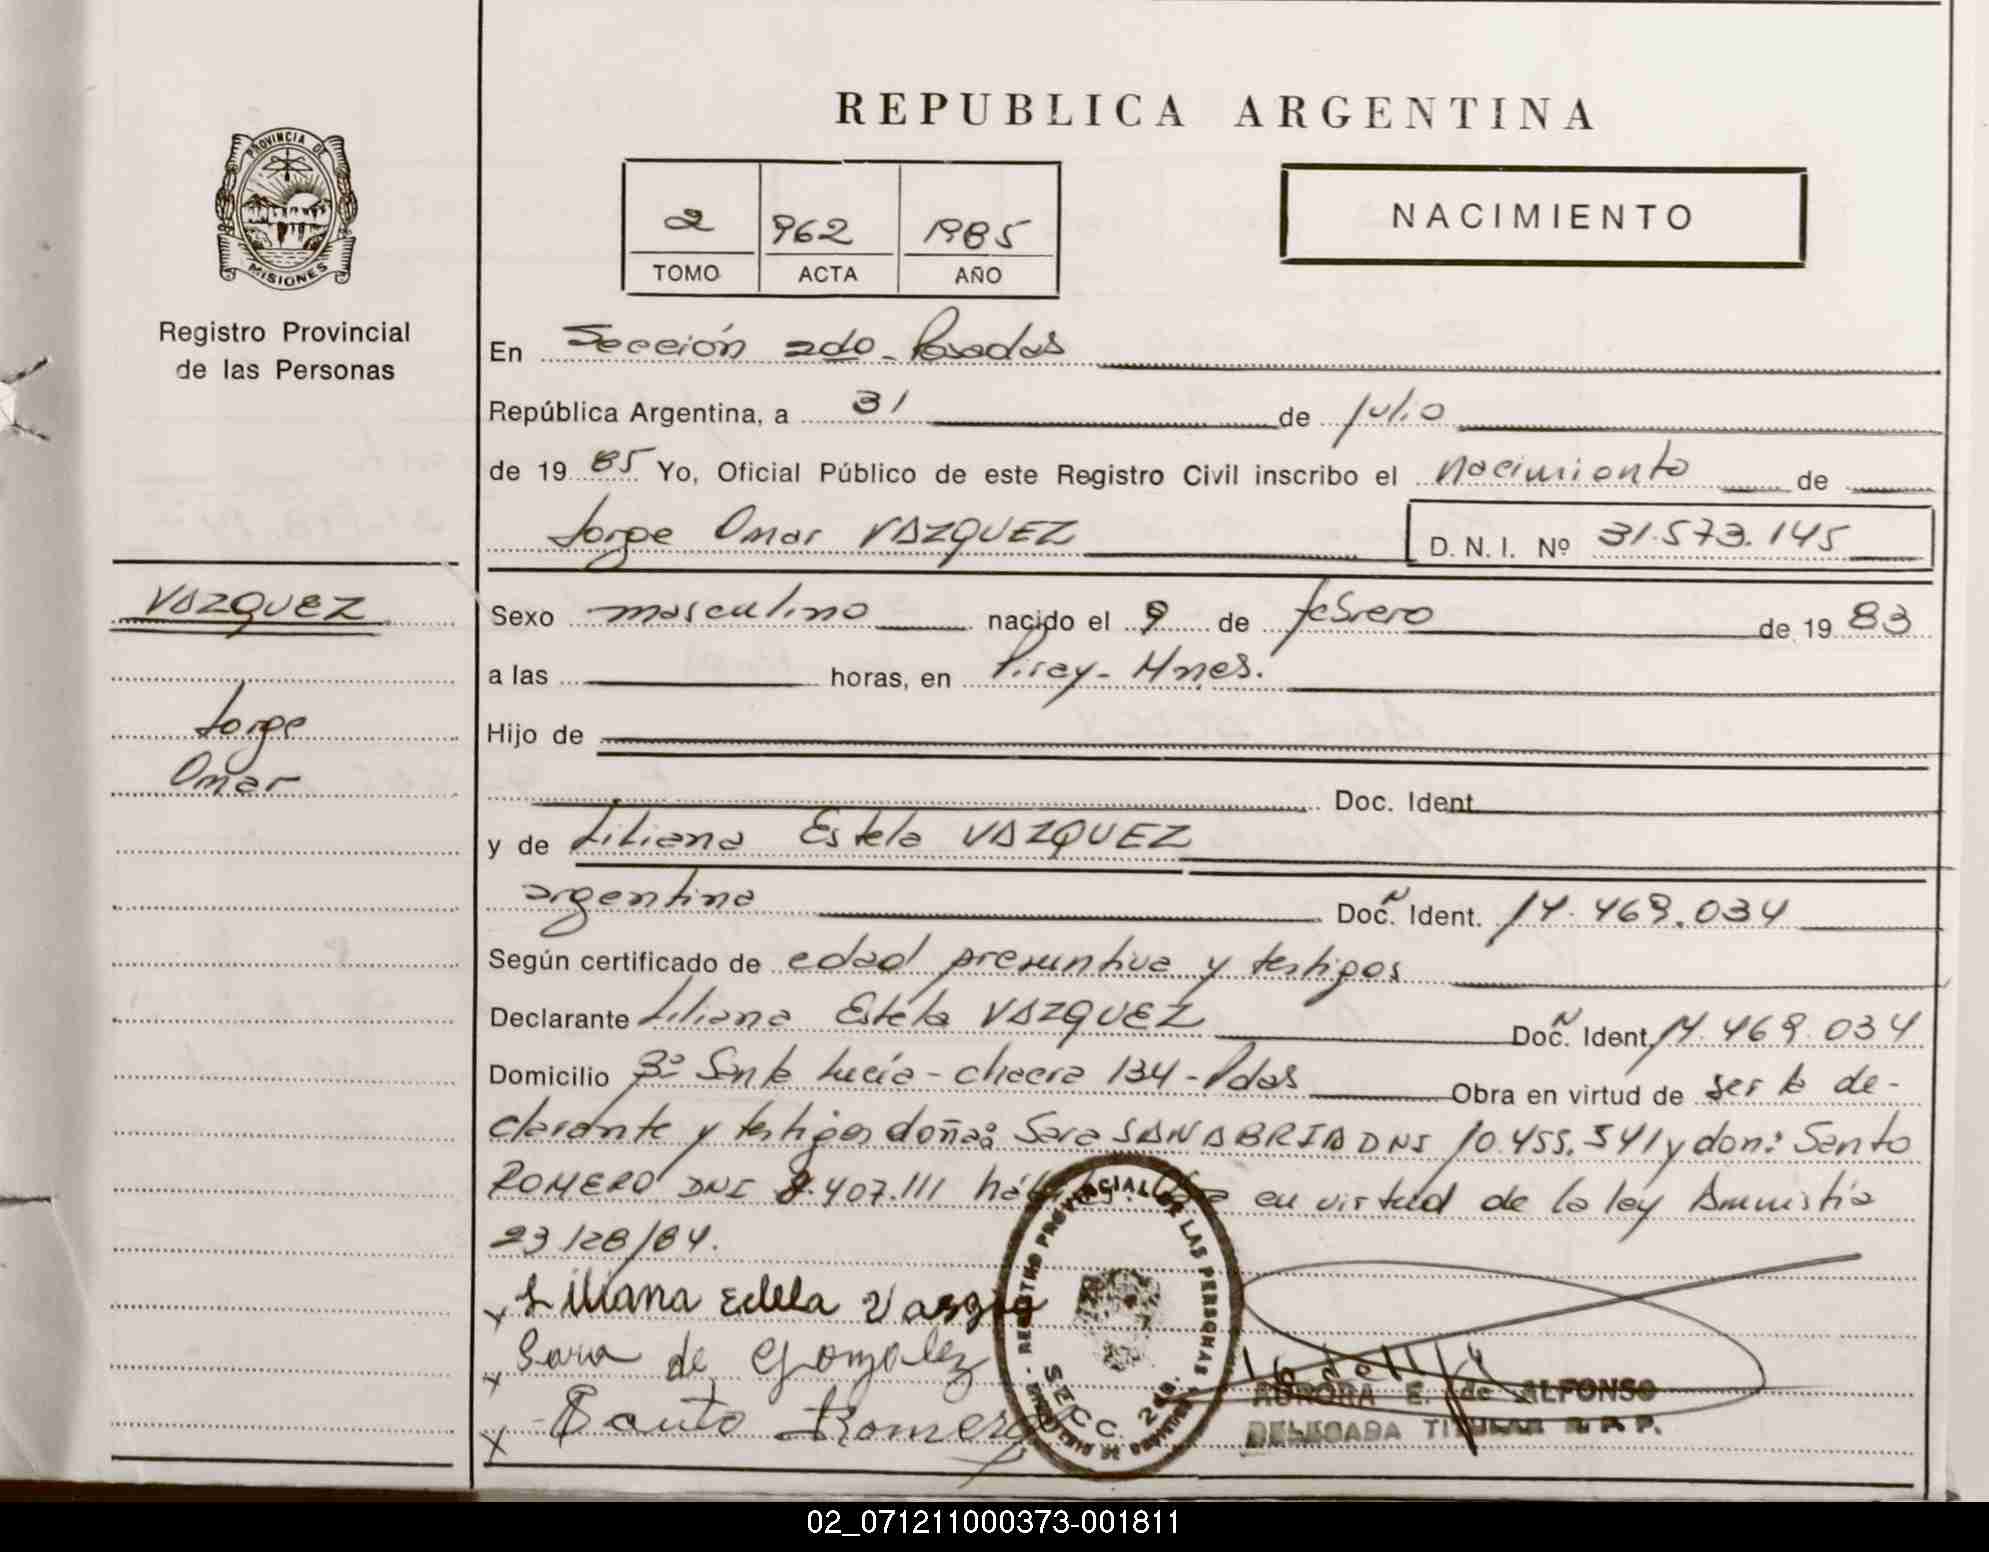 REPUBLICA ARGENTINA
PROVINCIA DE
MISIONES
Registro Provincial
de las Personas
2 962 1985
TOMO ACTA AÑO
NACIMIENTO
En Sección 2do - Posadas
República Argentina, a 31 de julio
de 1985 Yo, Oficial Público de este Registro Civil inscribo el nacimiento de
Jorge Omar VAZQUEZ D. N. I. Nº 31.573.145
VAZQUEZ
Jorge
Omar
Sexo masculino nacido el 9 de febrero de 1983
a las horas, en Piray - Mnes.
Hijo de
Doc. Ident.
y de Liliana Estela VAZQUEZ
argentina Doc. Ident. 14.469.034
Según certificado de edad presuntiva y testigos
Declarante Liliana Estela VAZQUEZ Doc. Ident. 14.469.034
Domicilio Bº Santa Lucía - chacra 134 - Pdas Obra en virtud de ser la de-
clarante y testigos doña: Sara SANABRIA DNI 10.455.541 y don: Santo
ROMERO DNI 8.407.111 en virtud de la ley Amnistía
23128/84.
x Liliana Estela
x Sara de Gonzalez
x Santo Romero
REGISTRO PROVINCIAL DE LAS PERSONAS
SECC. 2da.
AURORA E. de ALFONSO
DELEGADA TITULAR R. P. P.
02_071211000373-001811